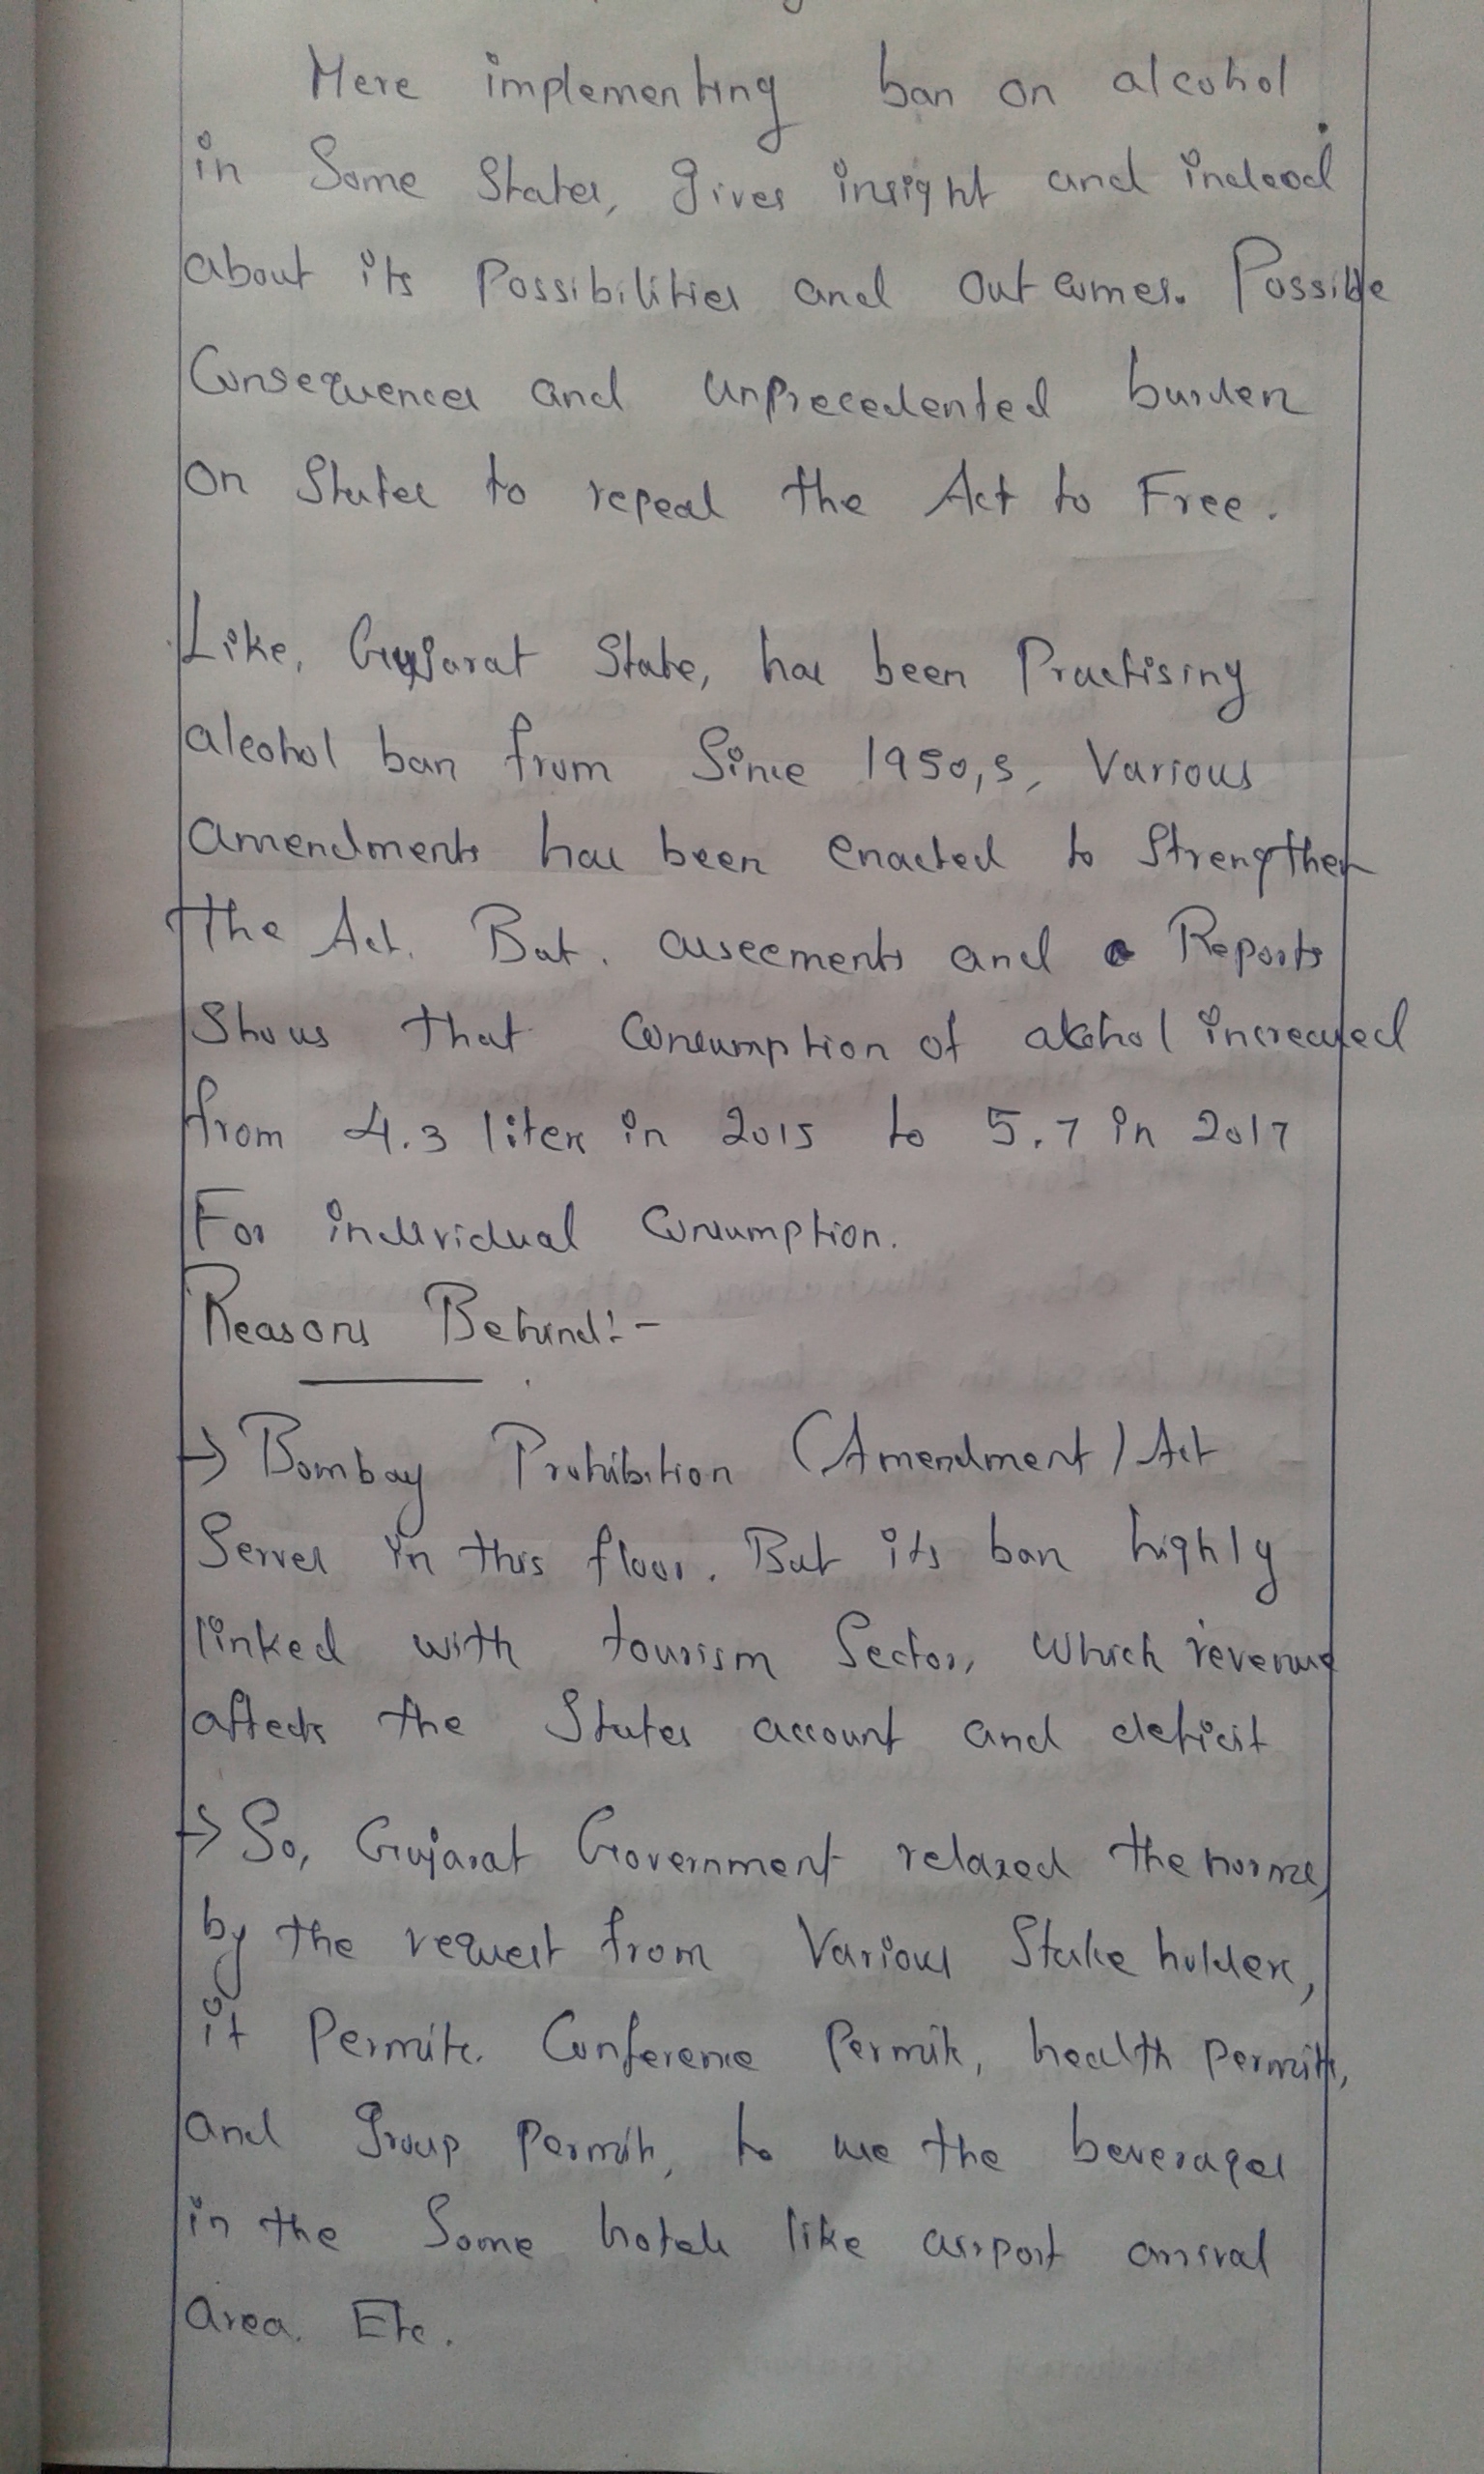 Here implementing ban on alcohol
in Some States, gives insight and indeed
about its Possibilities and Outcomes. Possible
Consequences and unprecedented burden
on States to repeal the Act to Free.
Like, Gujarat State, has been Practising
alcohol ban from Since 1950,s, Various
amendments has been enacted to Strengthen
the Act. But. asseements and Reports
Shows that Consumption of alcohol increased
from 4.3 liters in 2015 to 5.7 in 2017
For individual Consumption.
Reasons Behind:-
→ Bombay Prohibition (Amendment) Act
Serves in this floor. But its ban highly
linked with tourism Sector, which revenue
affects the States account and deficit
→ So, Gujarat Government relaxed the norms,
by the request from Various Stake holders,
it Permits. Conference Permits, health permits,
and group permits, to use the beverages
in the Some hotels like airport arrival
area. Etc.